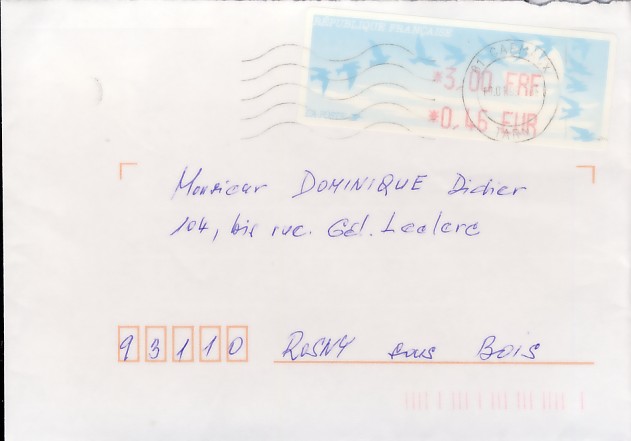 RÉPUBLIQUE FRANÇAISE
*3,00 FRF
*0,46 EUR
Monsieur DOMINIQUE Didier
104, bis rue. Gél. Leclerc
93110 ROSNY sous BOIS